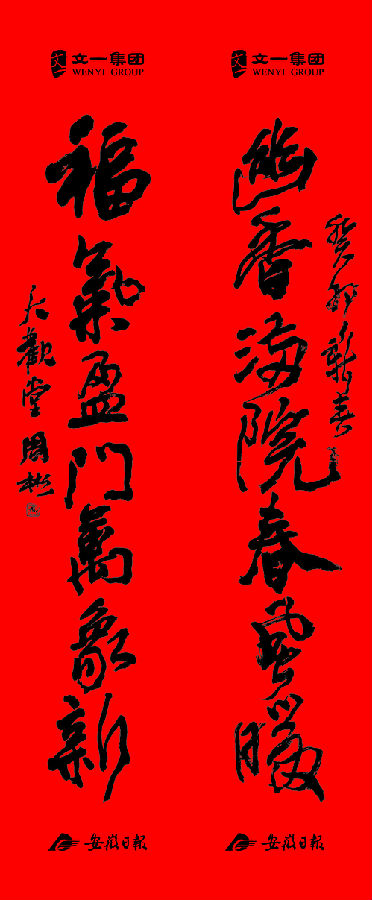 文一集团
WENYI GROUP
文一集团
WENYI GROUP
癸卯新春
幽香满院春風暖
福氣盈門萬象新
大觀堂周彬
安徽日报
安徽日报